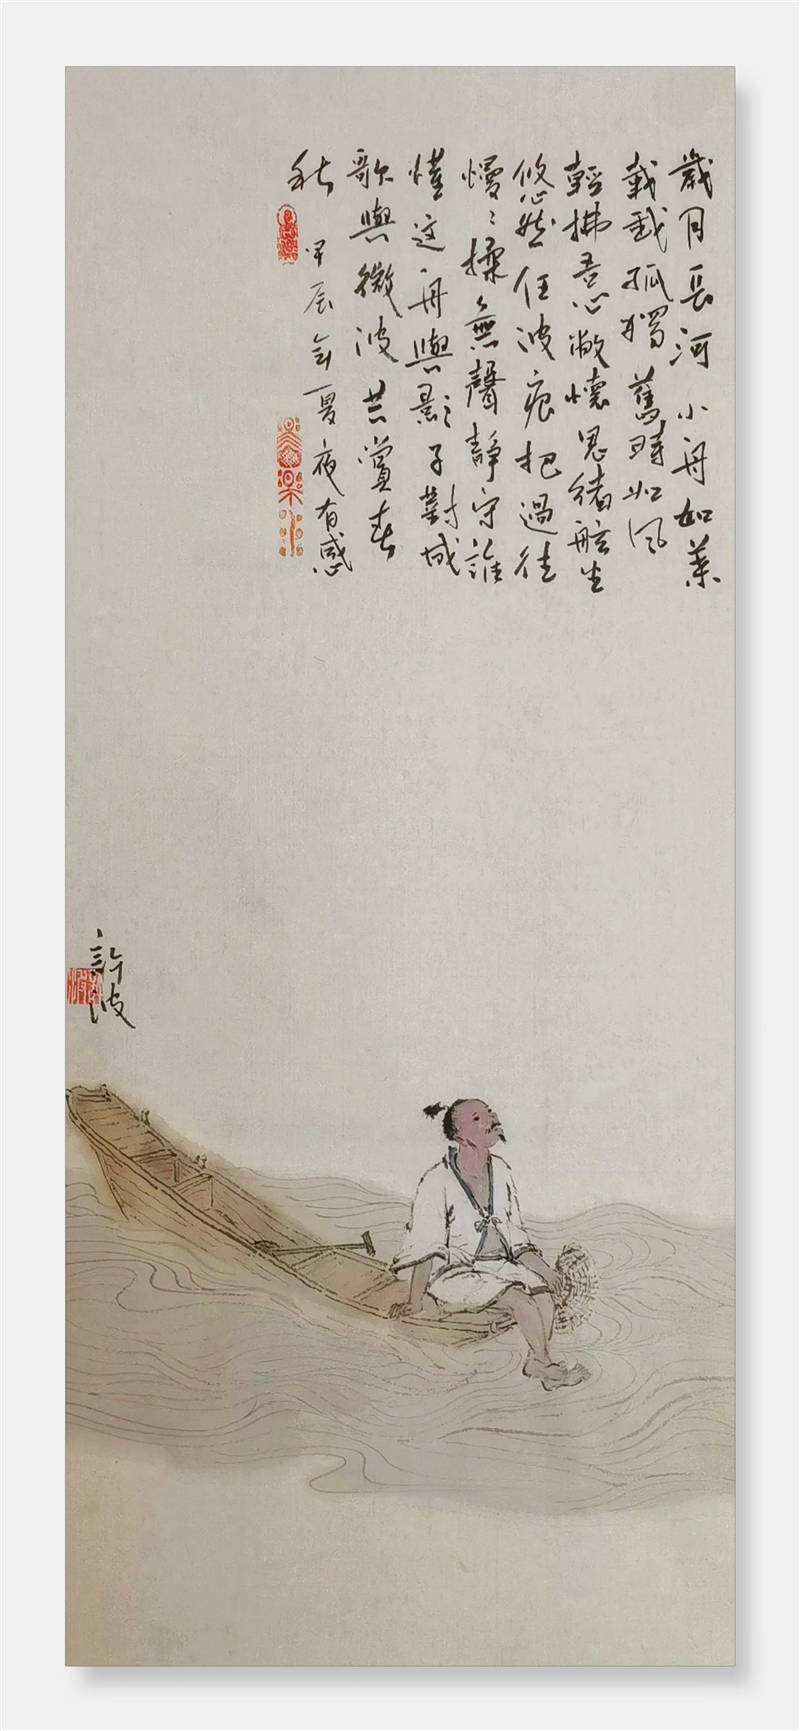 歲月長河小舟如葉
載我孤獨舊時如風
輕拂吾心敞懷思緒舷坐
悠然任波痕把過往
慢〻揉無聲靜守誰
懂這舟與影子對
歌與微波共賞春
秋 甲辰年夏夜有感
許波